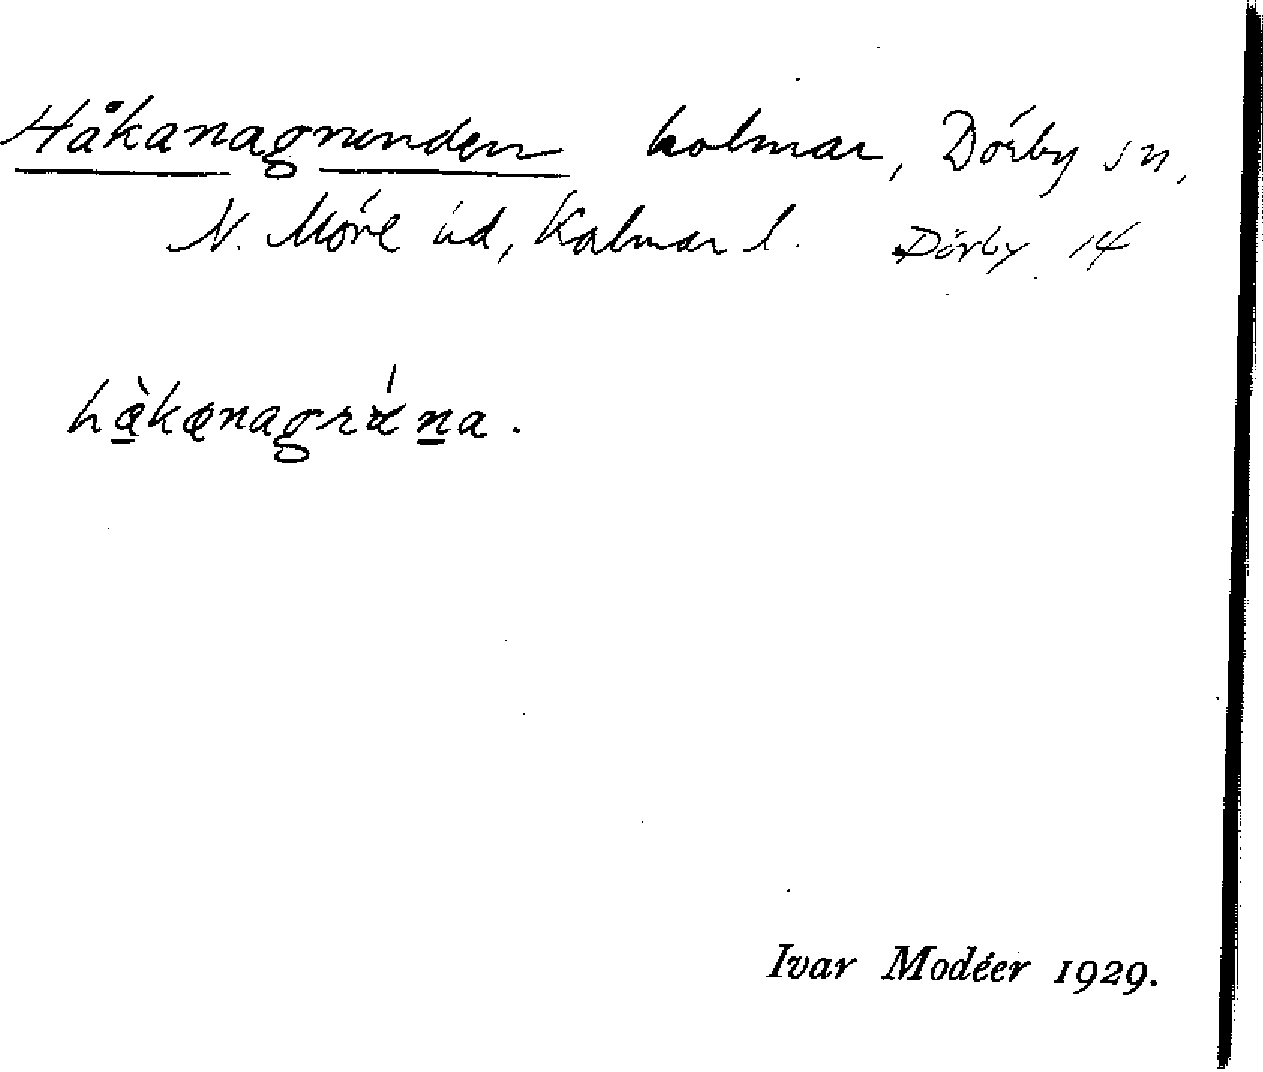 Håkanagrunden holmar, Dörby sn,
N. Möre hd, Kalmar l. Dörby 14
hæ̀kænagrána.
Ivar Modéer 1929.